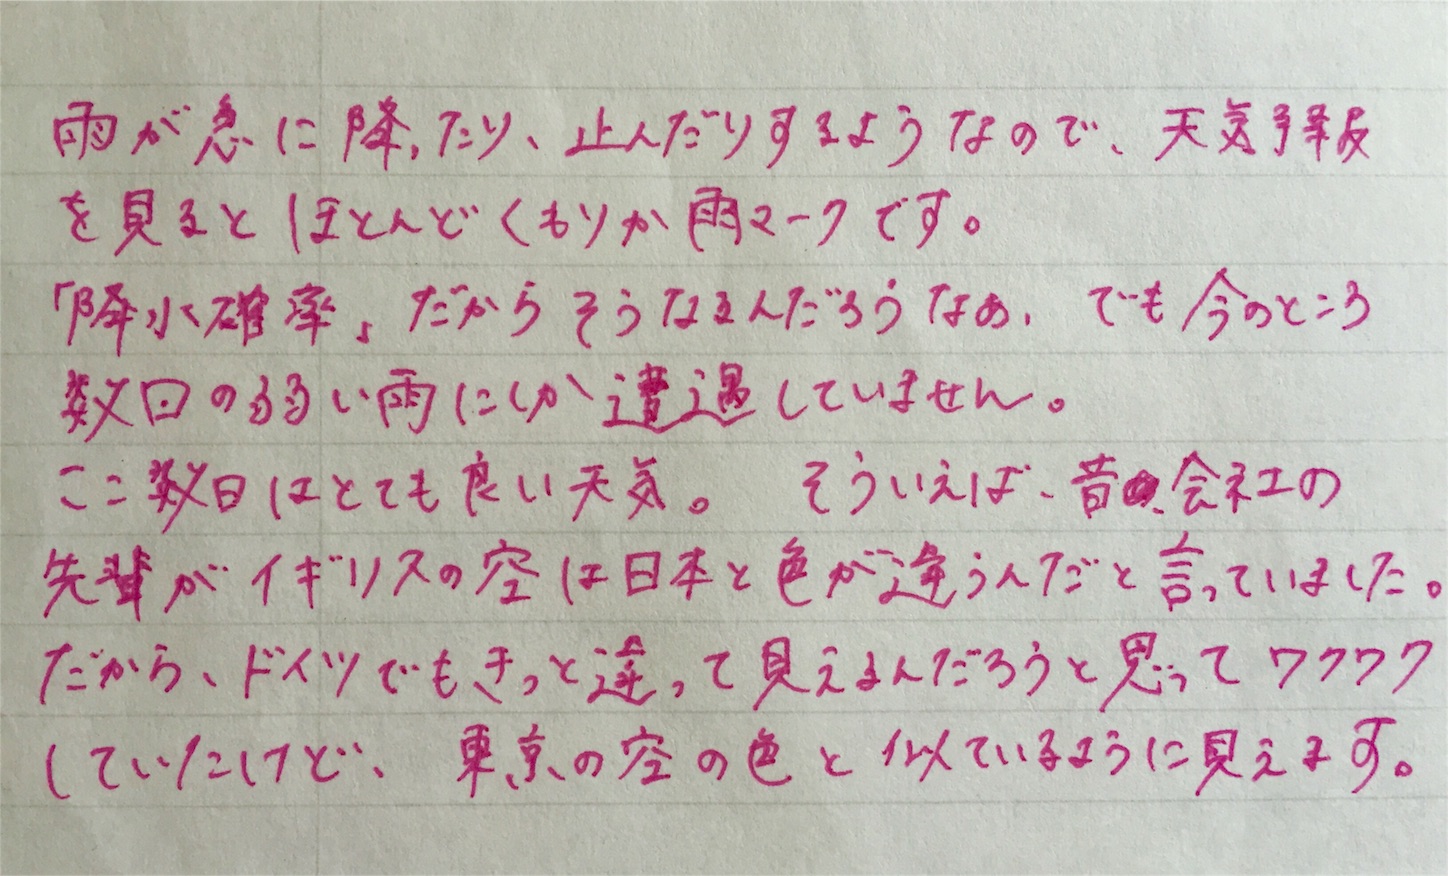 雨が急に降ったり、止んだりするようなので、天気予報
を見るとほとんどくもりか雨マークです。
「降水確率」だからそうなるんだろうなあ、でも今のところ
数回の弱い雨にしか遭遇していません。
ここ数日はとても良い天気。 そういえば、昔の会社の
先輩がイギリスの空は日本と色が違うんだと言っていました。
だから、ドイツでもきっと違って見えるんだろうと思ってワクワク
していたけど、 東京の空の色と似ているように見えます。